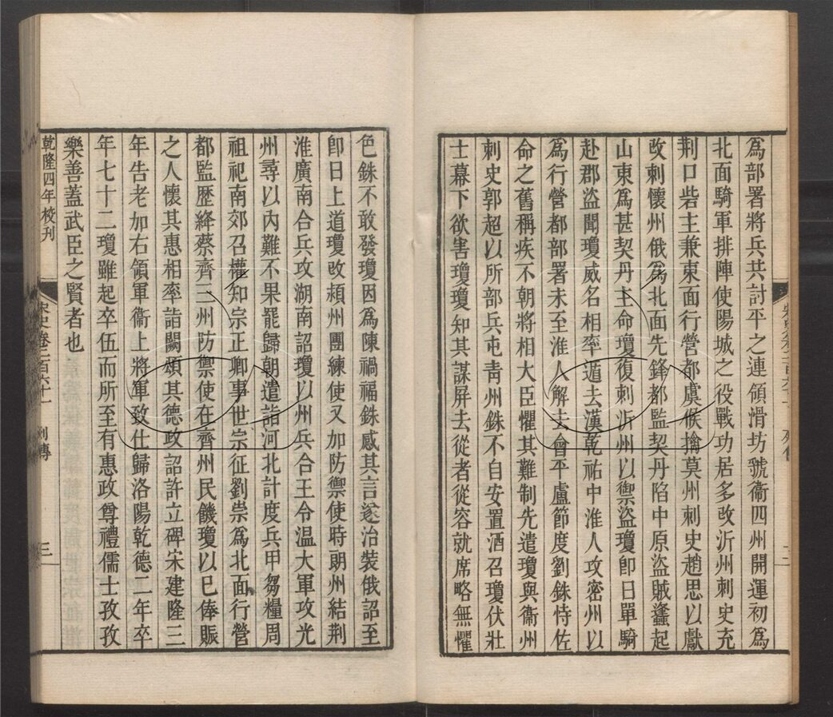 為部署將兵共討平之連領滑坊虢衛四州開運初為
北面騎軍排陣使陽城之役戰功居多改沂州刺史充
荆口砦主兼東面行營都虞候擒莫州刺史趙思以獻
改刺懷州俄為北面先鋒都監契丹陷中原盜賊蠭起
山東為甚契丹主命瓊復刺沂州以禦盜瓊即日單騎
赴郡盜聞瓊威名相率遁去漢乾祐中淮人攻密州以
為行營都部署未至淮人解去會平盧節度劉銖恃佐
命之舊稱疾不朝將相大臣懼其難制先遣瓊與衞州
刺史郭超以所部兵屯青州銖不自安置酒召瓊伏壯
士幕下欲害瓊瓊知其謀屏去從者從容就席略無懼
色銖不敢發瓊因為陳禍福銖感其言遂治裝俄詔至
卽日上道瓊改潁州團練使又加防禦使時朗州結荆
淮廣南合兵攻湖南詔瓊以州兵合王令温大軍攻光
州尋以内難不果罷歸朝遣詣河北計度兵甲芻糧周
祖祀南郊召權知宗正卿事世宗征劉崇為北面行營
都監歷絳蔡齊三州防禦使在齊州民饑瓊以已俸賑
之人懷其惠相率詣闕頌其德政詔許立碑宋建隆三
年告老加右領軍衞上將軍致仕歸洛陽乾德二年卒
年七十二瓊雖起卒伍而所至有惠政尊禮儒士孜孜
樂善蓋武臣之賢者也
乾隆四年校刊
宋史卷二百六十一 列傳
三